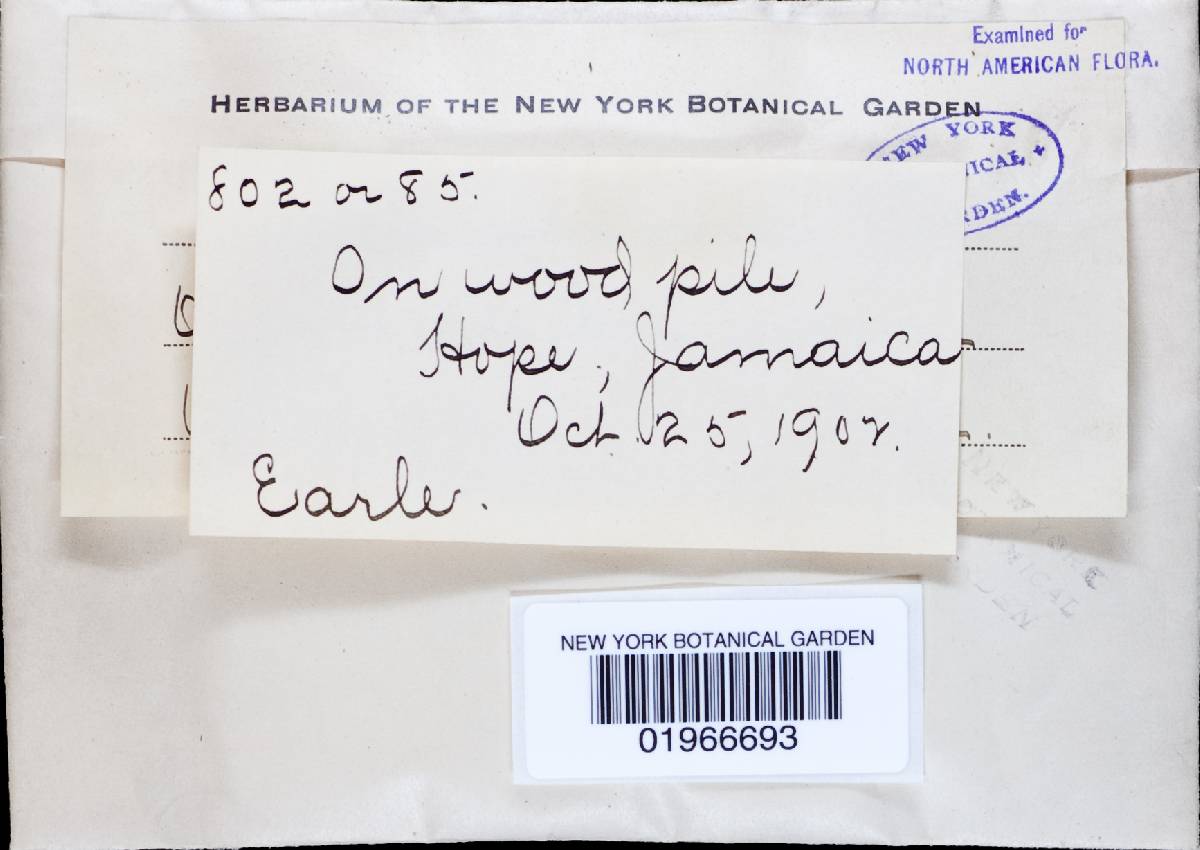 Examined for
NORTH AMERICAN FLORA.
HERBARIUM OF THE NEW YORK BOTANICAL GARDEN
NEW YORK
ICAL
RDEN.
802 or 85.
On wood pile,
Hope, Jamaica
Oct. 25, 1902.
Earle.
NEW YORK BOTANICAL GARDEN
01966693